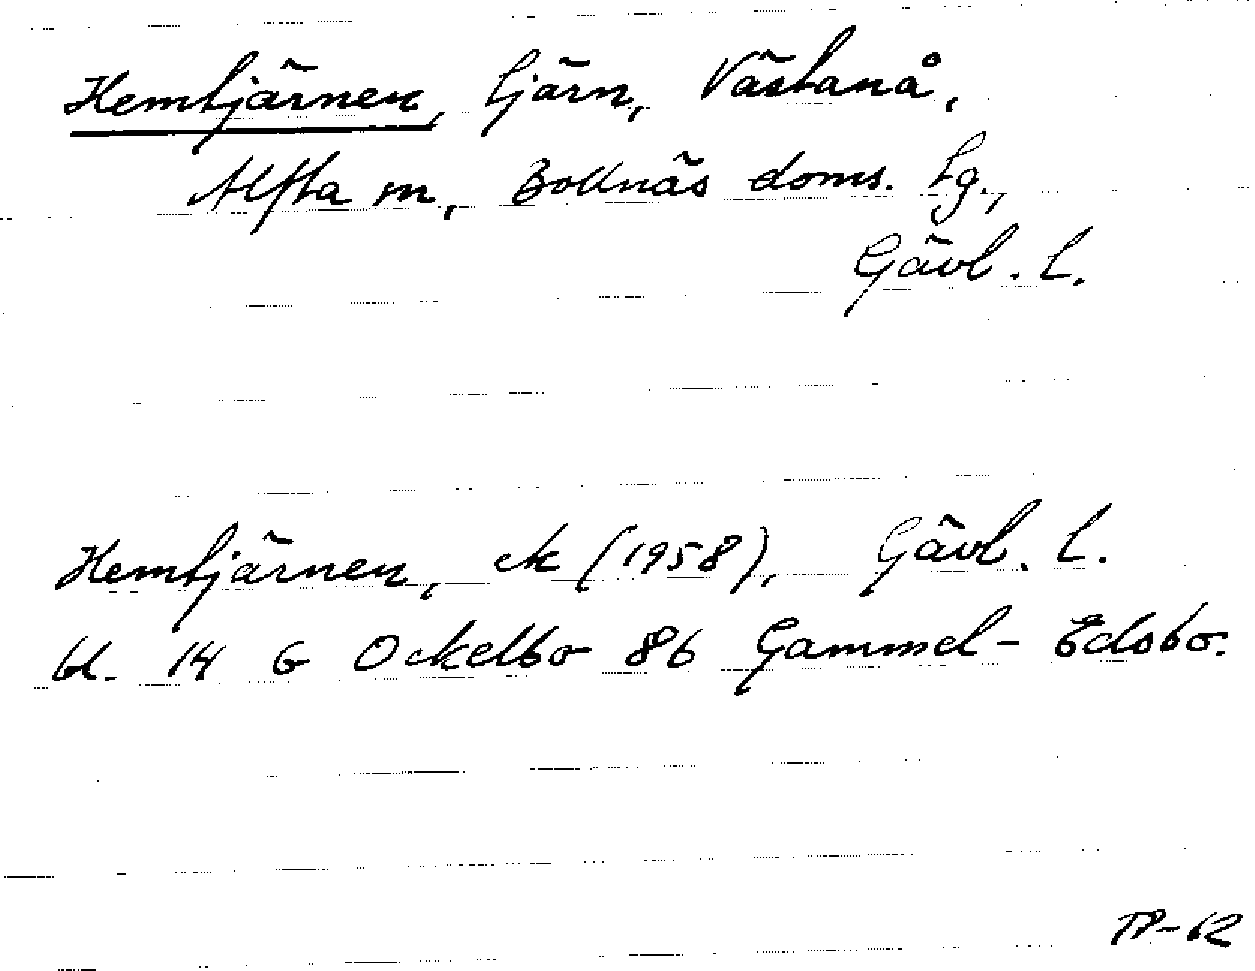 Hemtjärnen, tjärn, Västanå,
Alfta sn, Bollnäs doms. tg.,
Gävl. l.
Hemtjärnen, ek (1958), Gävl. l.
bl. 14 G Ockelbo 8b Gammel-Edsbo.
TP-62